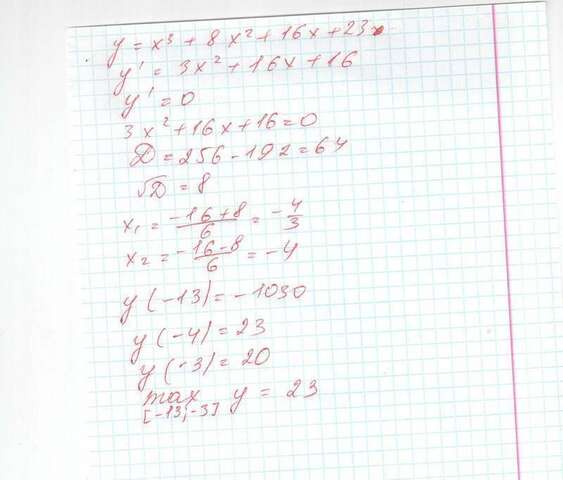 y = x³ + 8x² + 16x + 23
y' = 3x² + 16x + 16
y' = 0
3x² + 16x + 16 = 0
D = 256 - 192 = 64
√D = 8
x₁ = (-16+8)/6 = -4/3
x₂ = (-16-8)/6 = -4
y(-13) = -1030
y(-4) = 23
y(-3) = 20
max y = 23
[-13;-3]